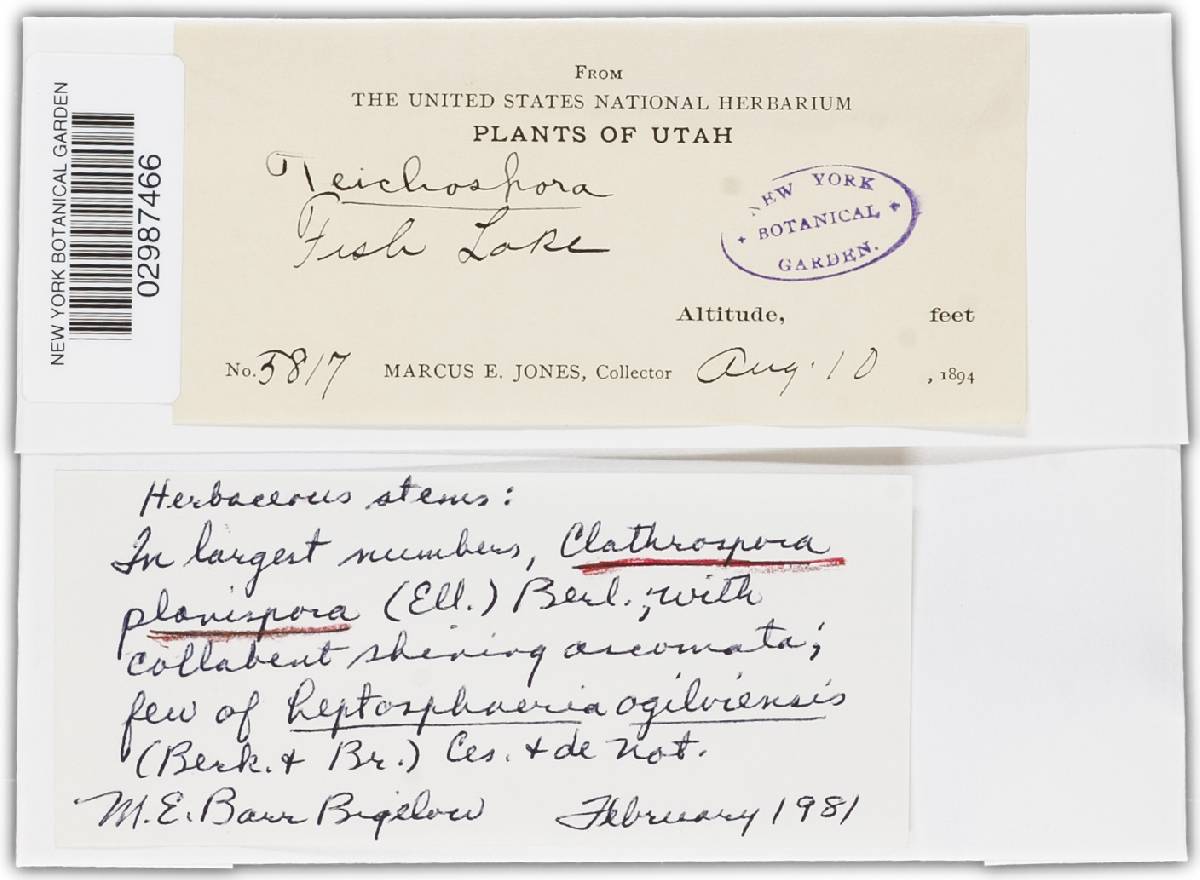 NEW YORK BOTANICAL GARDEN
02987466
FROM
THE UNITED STATES NATIONAL HERBARIUM
PLANTS OF UTAH
Teichospora
Fish Lake
NEW YORK
* BOTANICAL *
GARDEN.
Altitude, feet
No. 5817 MARCUS E. JONES, Collector Aug. 10, 1894
Herbaceous stems:
In largest numbers, Clathrospora
planispora (Ell.) Berl.; with
collabent shining ascomata;
few of Leptosphaeria ogilviensis
(Berk. & Br.) Ces. & de Not.
M. E. Barr Bigelow February 1981